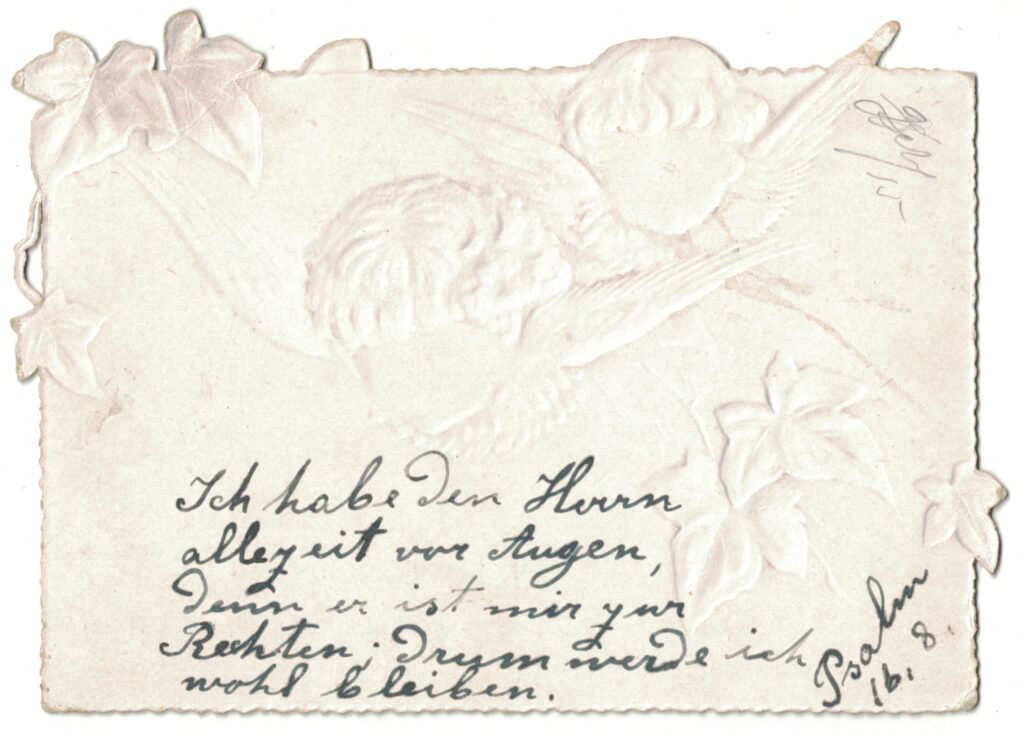 Ich habe den Herrn
allezeit vor Augen,
denn er ist mir zur
Rechten; drum werde ich
wohl bleiben.
Psalm
16, 8.